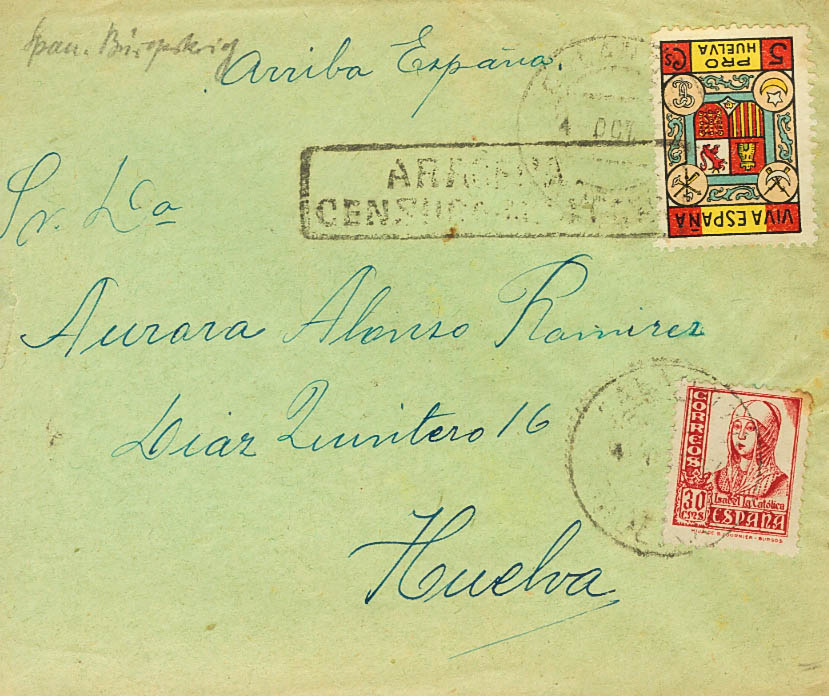 Span. Bürgerkrieg
Arriba España.
5 Cs
PRO
HUELVA
VIVA ESPAÑA
4 OCT
ARACENA
CENSURA
Sr. Da
Aurora Alonso Ramirez
Diaz Quintero 16
Huelva
CORREOS
30
CMS
Isabel la Católica
ESPAÑA
HIJA DE B. FOURNIER - BURGOS